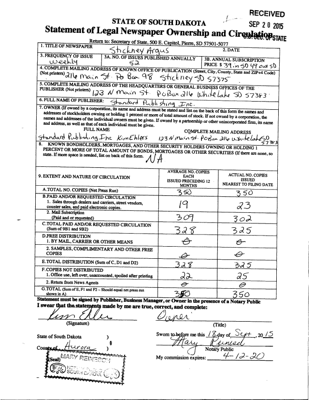 RECEIVED
SEP 28 2015
STATE OF SOUTH DAKOTA
Statement of Legal Newspaper Ownership and Circulation
Return to: Secretary of State, 500 E. Capitol, Pierre, SD 57501-5077
1. TITLE OF NEWSPAPER
Stickney Argus
2. DATE
3. FREQUENCY OF ISSUE
weekly
3A. NO. OF ISSUES PUBLISHED ANNUALLY
52
3B. ANNUAL SUBSCRIPTION
PRICE $
4. COMPLETE MAILING ADDRESS OF KNOWN OFFICE OF PUBLICATION (Street, City, County, State and ZIP+4 Code)
(Not printers) 216 main St Po Box 98 Stickney SD 57375
5. COMPLETE MAILING ADDRESS OF THE HEADQUARTERS OR GENERAL BUSINESS OFFICES OF THE
PUBLISHER (Not printer)
6. FULL NAME OF PUBLISHER: Standard Publishing Inc.
7. OWNER (If owned by a corporation, its name and address must be stated and list on the back of this form the names and
addresses of stockholders owning or holding 1 percent or more of total amount of stock. If not owned by a corporation, the
names and addresses of the individual owners must be given. If owned by a partnership or other unincorporated firm, its name
and address, as well as that of each individual must be given.
FULL NAME
COMPLETE MAILING ADDRESS
Standard Publishing Inc
8. KNOWN BONDHOLDERS, MORTGAGEES, AND OTHER SECURITY HOLDERS OWNING OR HOLDING 1
PERCENT OR MORE OF TOTAL AMOUNT OF BONDS, MORTGAGES OR OTHER SECURITIES (If none, so
state. If more space is needed, list on back of this form.
N/A
9. EXTENT AND NATURE OF CIRCULATION
AVERAGE NO. COPIES
EACH
ISSUED PRECEDING 12
MONTHS
ACTUAL NO. COPIES
ISSUED
NEAREST TO FILING DATE
A. TOTAL NO. COPIES (Net Press Run)
350
350
B. PAID AND/OR REQUESTED CIRCULATION
1. Sales through dealers and carriers, street vendors,
counter sales, and paid electronic copies.
19
23
2. Mail Subscription
(Paid and or requested)
309
302
C. TOTAL PAID AND/OR REQUESTED CIRCULATION
(Sum of 9B1 and 9B2)
328
325
D. FREE DISTRIBUTION
1. BY MAIL, CARRIER OR OTHER MEANS
2. SAMPLES, COMPLIMENTARY AND OTHER FREE
COPIES
E. TOTAL DISTRIBUTION (Sum of C, D1 and D2)
328
325
F. COPIES NOT DISTRIBUTED
1. Office use, left over, unaccounted, spoiled after printing
22
25
2. Return from News Agents
G. TOTAL (Sum of E, F1 and F2 - Should equal net press run
shown in A)
350
350
Statement must be signed by Publisher, Business Manager, or Owner in the presence of a Notary Public
I swear that the statements made by me are true, correct, and complete:
Owner
(Signature)
(Title)
State of South Dakota
County of Aurora
Sworn to before me this 18 day of Sept 2015
Notary Public
My commission expires: 4-12-20
(Seal)